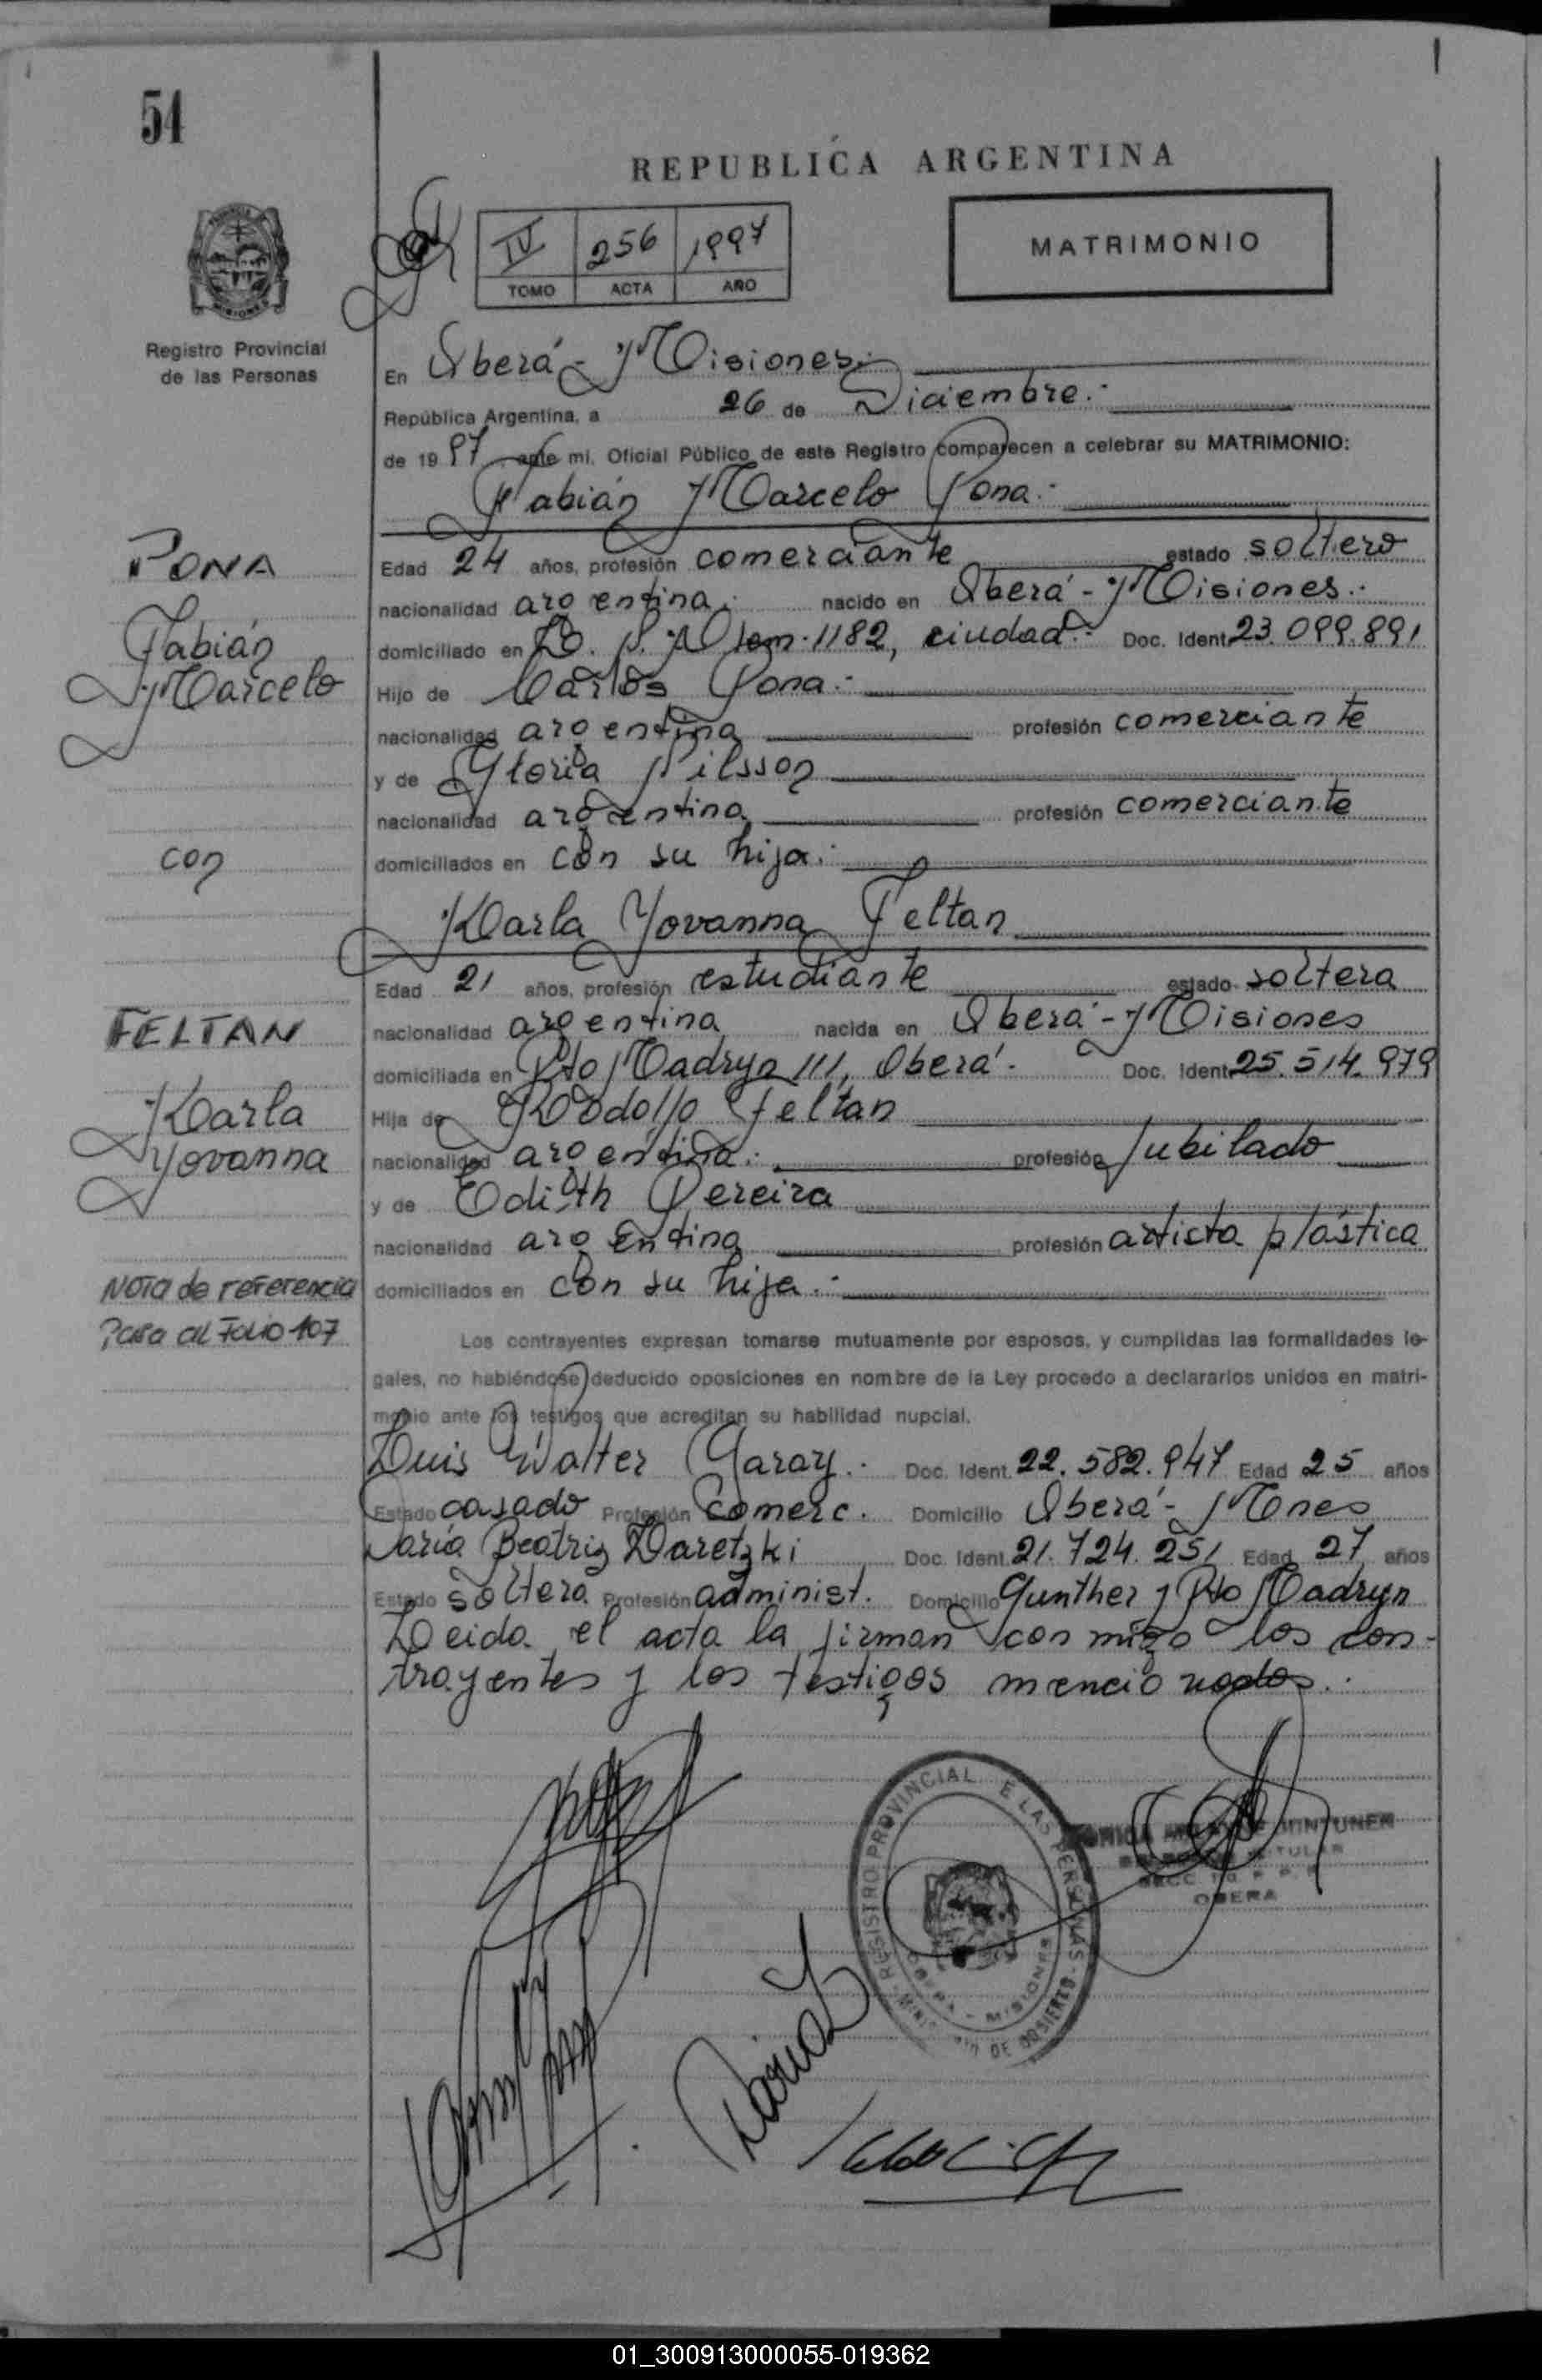 54
REPUBLICA ARGENTINA
IV 256 1997
TOMO ACTA AÑO
MATRIMONIO
Registro Provincial
de las Personas
En Oberá - Misiones.-
República Argentina, a 26 de Diciembre.-
de 1997 ante mi, Oficial Público de este Registro comparecen a celebrar su MATRIMONIO:
Fabián Marcelo Pona.-
PONA
Fabián
Marcelo
con
FELTAN
Karla
Yovanna
Nota de referencia
Pasa al Folio 107
Edad 24 años, profesión comerciante estado soltero
nacionalidad argentina.- nacido en Oberá - Misiones.-
domiciliado en L. N. Alem 1182, ciudad.- Doc. Ident. 23.099.891
Hijo de Carlos Pona.-
nacionalidad argentina profesión comerciante
y de Gloria Nilsson
nacionalidad argentina profesión comerciante
domiciliados en con su hijo.-
Karla Yovanna Feltan
Edad 21 años, profesión estudiante estado soltera
nacionalidad argentina nacida en Oberá - Misiones
domiciliada en Pto Madryn 111, Oberá.- Doc. Ident. 25.514.979
Hija de Rodolfo Feltan
nacionalidad argentina.- profesión Jubilado
y de Edith Pereira
nacionalidad argentina profesión artista plástica
domiciliados en con su hija.-
Los contrayentes expresan tomarse mutuamente por esposos, y cumplidas las formalidades le-
gales, no habiéndose deducido oposiciones en nombre de la Ley procedo a declararlos unidos en matri-
monio ante los testigos que acreditan su habilidad nupcial.
Luis Walter Garay.- Doc. Ident. 22.582.947 Edad 25 años
Estado casado Profesión Comerc. Domicilio Oberá - Mnes
María Beatriz Zaretzki Doc. Ident. 21.724.251 Edad 27 años
Estado soltera Profesión administ. Domicilio Gunther y Pto Madryn
Leida el acta la firman conmigo los con-
trayentes y los testigos mencionados.-
REGISTRO PROVINCIAL DE LAS PERSONAS
OBERA - MISIONES
OBERA
01_300913000055-019362